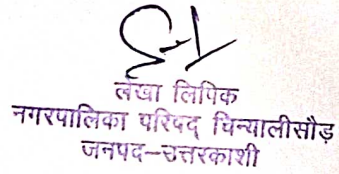 लेखा लिपिक
नगरपालिका परिषद् चिन्यालीसौड़
जनपद-उत्तरकाशी